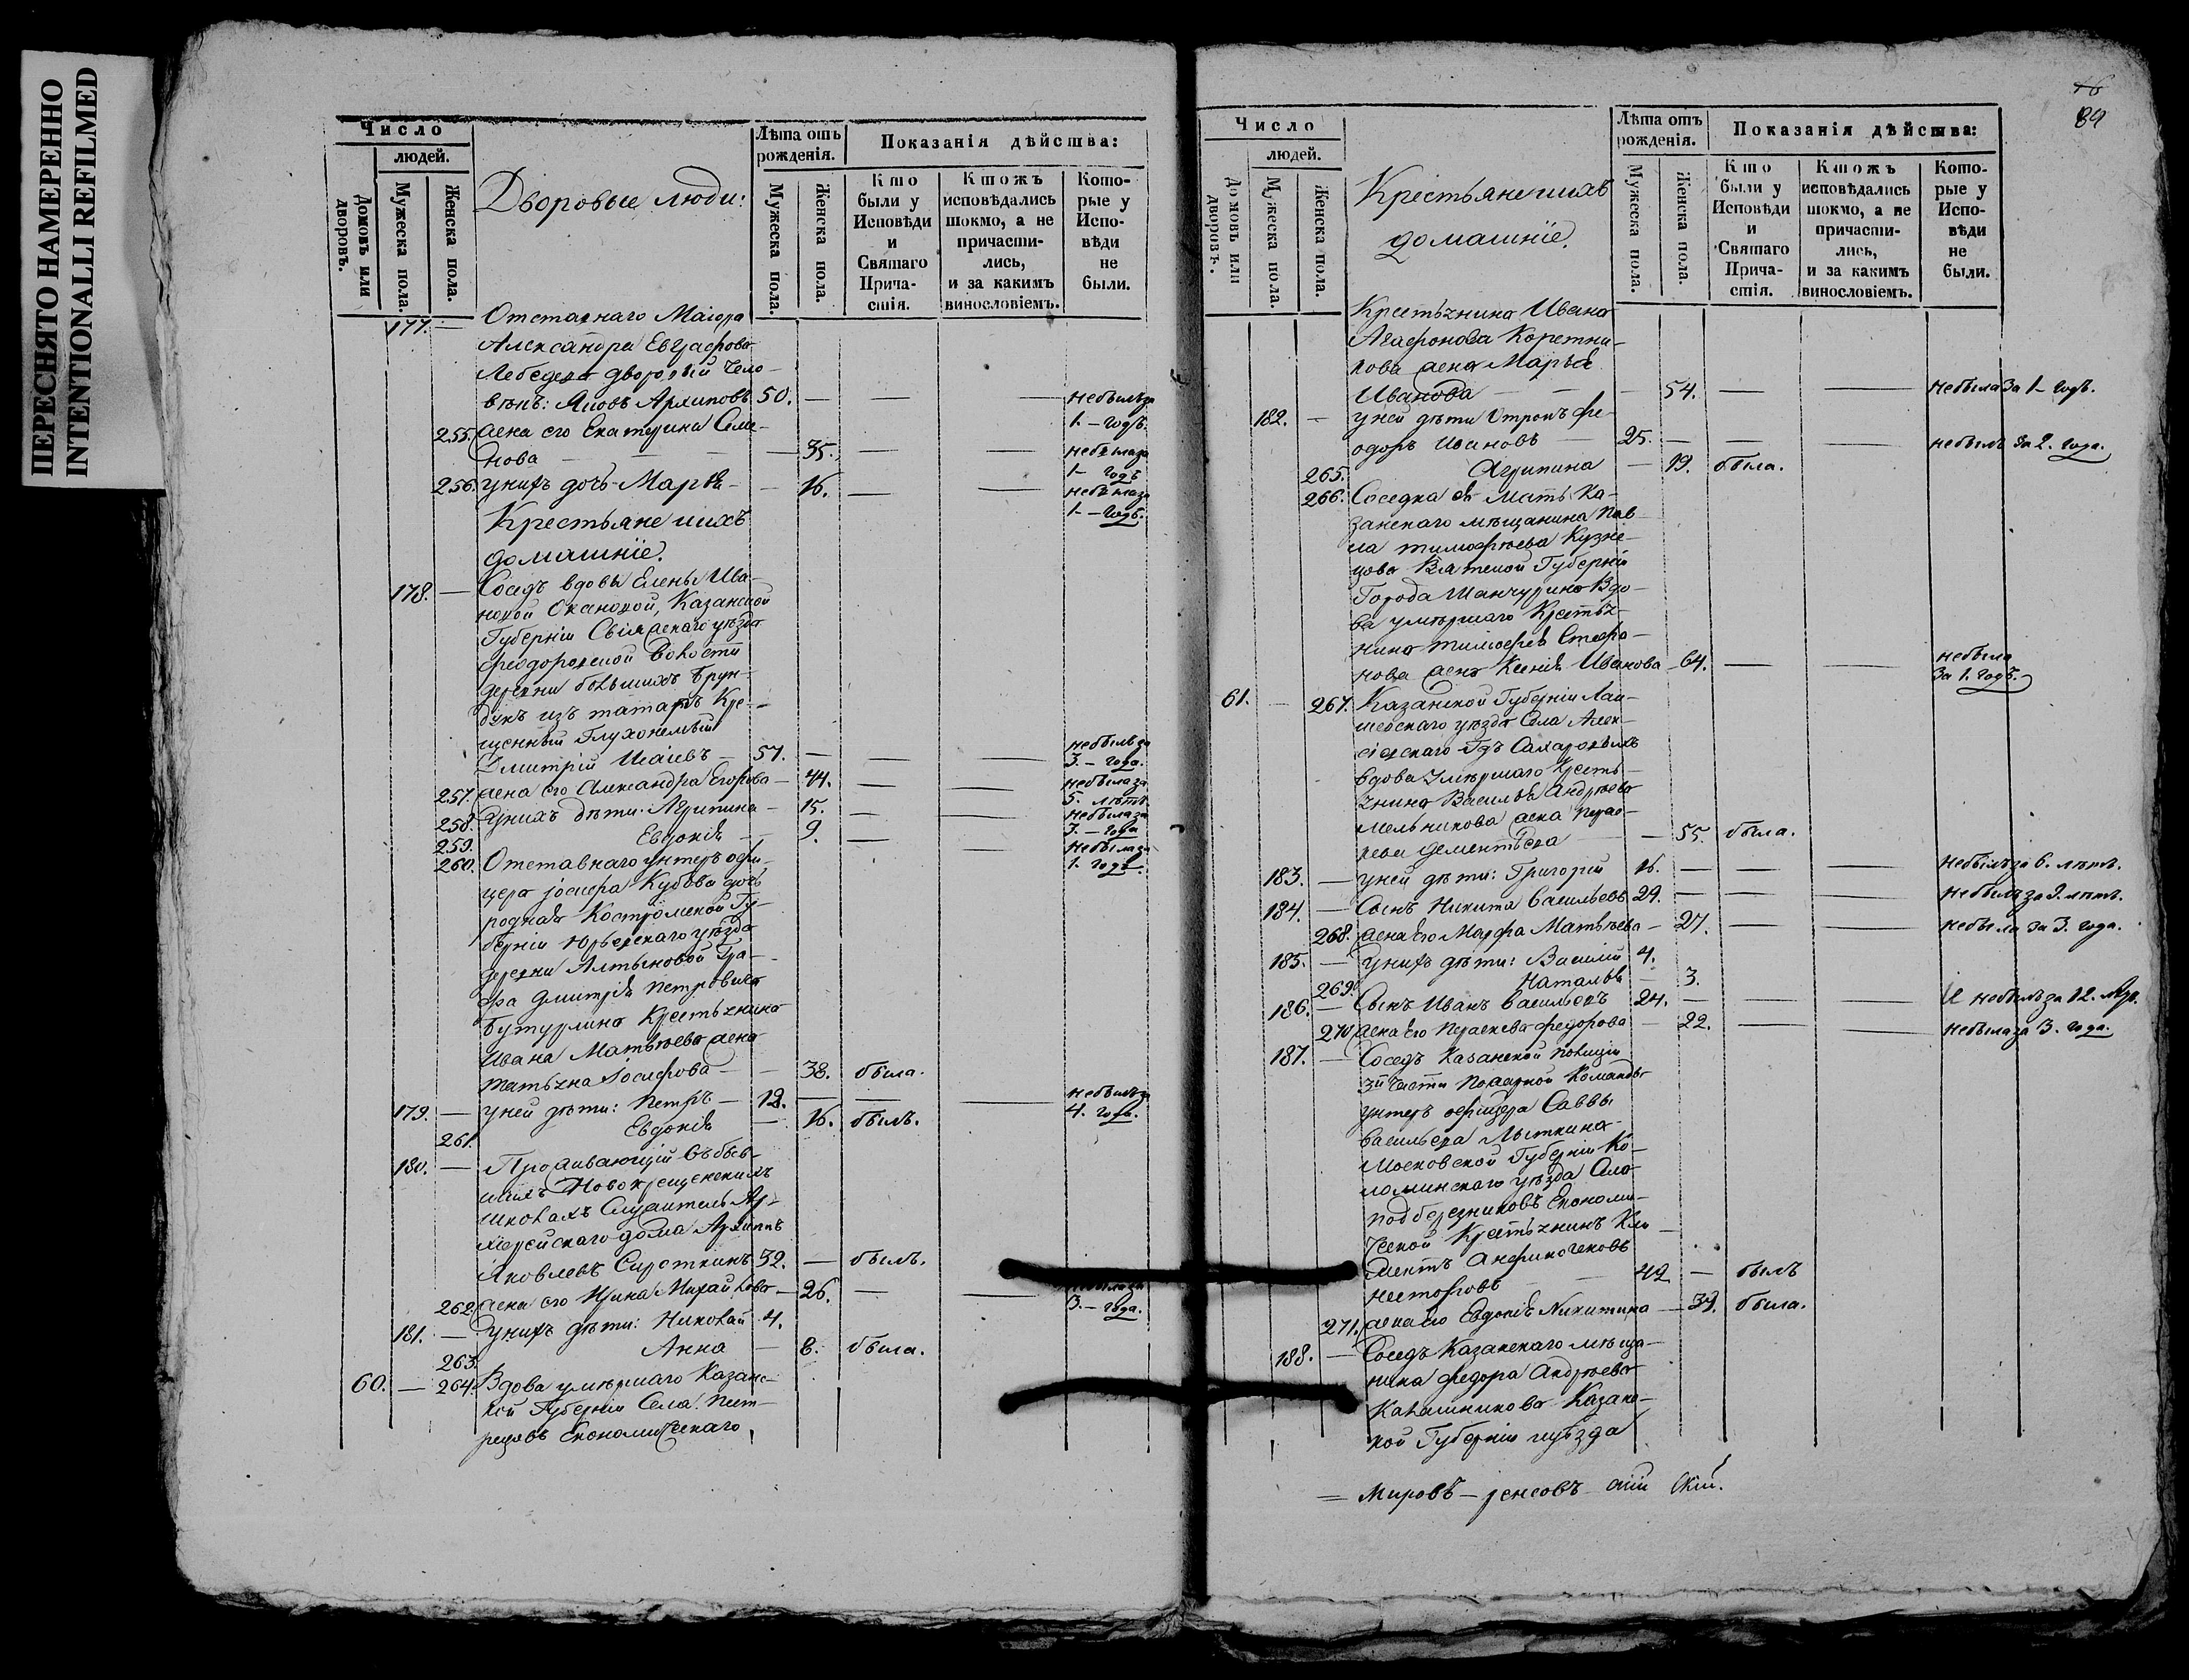 ПЕРЕСНЯТО НАМЕРЕННО
INTENTIONALLI REFILMED
Число
людей.
Домовъ или дворовъ.
Мужеска пола.
Женска пола.
Дворовые люди:
Лѣта отъ рожденія.
Мужеска пола.
Женска пола.
Показанія дѣйства:
Кто были у Исповѣди и Святаго Причастія.
Ктожъ исповѣдались токмо, а не причастились, и за какимъ винословіемъ.
Которые у Исповѣди не были.
177. — Отставнаго Маіора
Александра Евграфова
Лебедева дворовый чело-
вѣкъ: Яковъ Архиповъ 50. — — — небылъ за
1.- годъ.
255. жена его Екатерина Семе-
нова — 35. — — небыла за
1- годъ
256. унихъ дочь Марья — 16. — — небыла за
1.- годъ.
Крестьяне иихъ
домашніе.
178. — Соседъ вдовы Елены Ива-
новой Окановой, Казанской
Губерніи Свіяжскаго уѣзда
Феодоровской волости
деревни большихъ Брун-
дукъ изъ татаръ Кре-
щенный Глухонемый
Дмитрій Исаіевъ — 57. — — — небылъ за
3.- года.
257. жена его Александра Егорова — 44. — — небыла за
5. лѣтъ.
258. унихъ дѣти: Агрипина — 15. — — небыла за
3.- года
259. Евдокія — 9. — — небыла за
1. годъ.
260. Отставнаго унтеръ офи-
цера Іосифа Кубова дочь
родная Костромской Гу-
берніи Юрьевскаго уѣзда
деревни Алтыновой Гра-
фа Дмитрія Петровича
Бутурлина Крестьянина
Ивана Матвѣева жена
Татьяна Іосифова — — 38. была.
179. — уней дѣти: Петръ — 12. — — — небылъ за
4. года.
261. Евдокія — 16. былъ.
180. — Проживающій въ быв-
шихъ Новокрещенскихъ
школахъ Служитель Ар-
хіерейскаго дома Архиппъ
Яковлевъ Сироткинъ 32. — былъ.
262. жена его Ирина Михайлова — 26. — — небыла за
3.- года.
181. — унихъ дѣти: Николай 4.
263. Анна — 8. была.
60. — 264. Вдова умершаго Казанс-
кой Губерніи Села Пест-
рецовъ Економическаго
16
89
Число
людей.
Домовъ или дворовъ.
Мужеска пола.
Женска пола.
Крестьяне иихъ
домашніе.
Лѣта отъ рожденія.
Мужеска пола.
Женска пола.
Показанія дѣйства:
Кто были у Исповѣди и Святаго Причастія.
Ктожъ исповѣдались токмо, а не причастились, и за какимъ винословіемъ.
Которые у Исповѣди не были.
Крестьянина Ивана
Агафонова Коретни-
кова жена Марья
Иванова — — 54. — — небыла за 1- годъ.
182. — уней дѣти Отрокъ Фе-
одоръ Ивановъ — 25. — — — небылъ за 2. года.
265. Агрипина — 19. была.
266. Соседка ея мать Ка-
занскаго мѣщанина Пав-
ла Тимофѣева Кузне-
цова Вятской Губерніи
Города Шанчурина Вдо-
ва умершаго Крестья-
нина Тимофея Стефа-
нова жена Ксенія Иванова — 64. — — небыла
за 1. годъ.
61. — 267. Казанской Губерніи Лаи-
шевскаго уѣзда Села Алек-
сіевскаго Гдъ Сахаровыхъ
вдова умершаго Кресть-
янина Василья Андреева
Мельникова жена Парас-
кева Дементьева — — 55. была.
183. — уней дѣти: Григорій 16. — — — небылъ за 6. лѣтъ.
184. — Сынъ Никита Васильевъ 29. — — — небылъ за 9. лѣтъ.
268. жена его Марфа Матвѣева — 27. — — небыла за 3. года.
185. — унихъ дѣти: Василій 4.
269. Наталья — 3.
186. — Сынъ Иванъ Васильевъ 24. — — — небылъ за 12. лѣт.
270. жена его Параскева Федорова — 22. — — небыла за 3. года.
187. — Соседъ Казанской полиціи
3й части Пожарной Команды
унтеръ офицера Саввы
Васильева Лыткина
Московской Губерніи Ко-
ломинскаго уѣзда Села
Подберезниковъ Економи-
ческой Крестьянинъ Кли-
ментъ
Несторовъ — — 42 — былъ
271. жена его Евдокія Никитина — 39. была.
188. — Соседъ Казанскаго мѣща-
нина Федора Андреева
Калашникова Казанс-
кой Губерніи иуѣзда